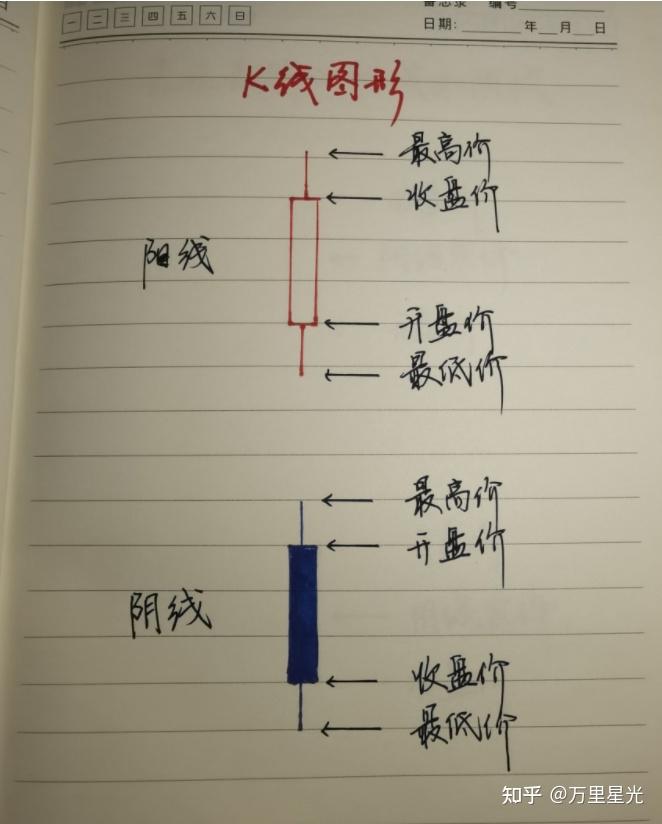 一 二 三 四 五 六 日
备忘录 编号
日期: 年 月 日
K线图形
最高价
收盘价
阳线
开盘价
最低价
最高价
开盘价
阴线
收盘价
最低价
知乎 @万里星光